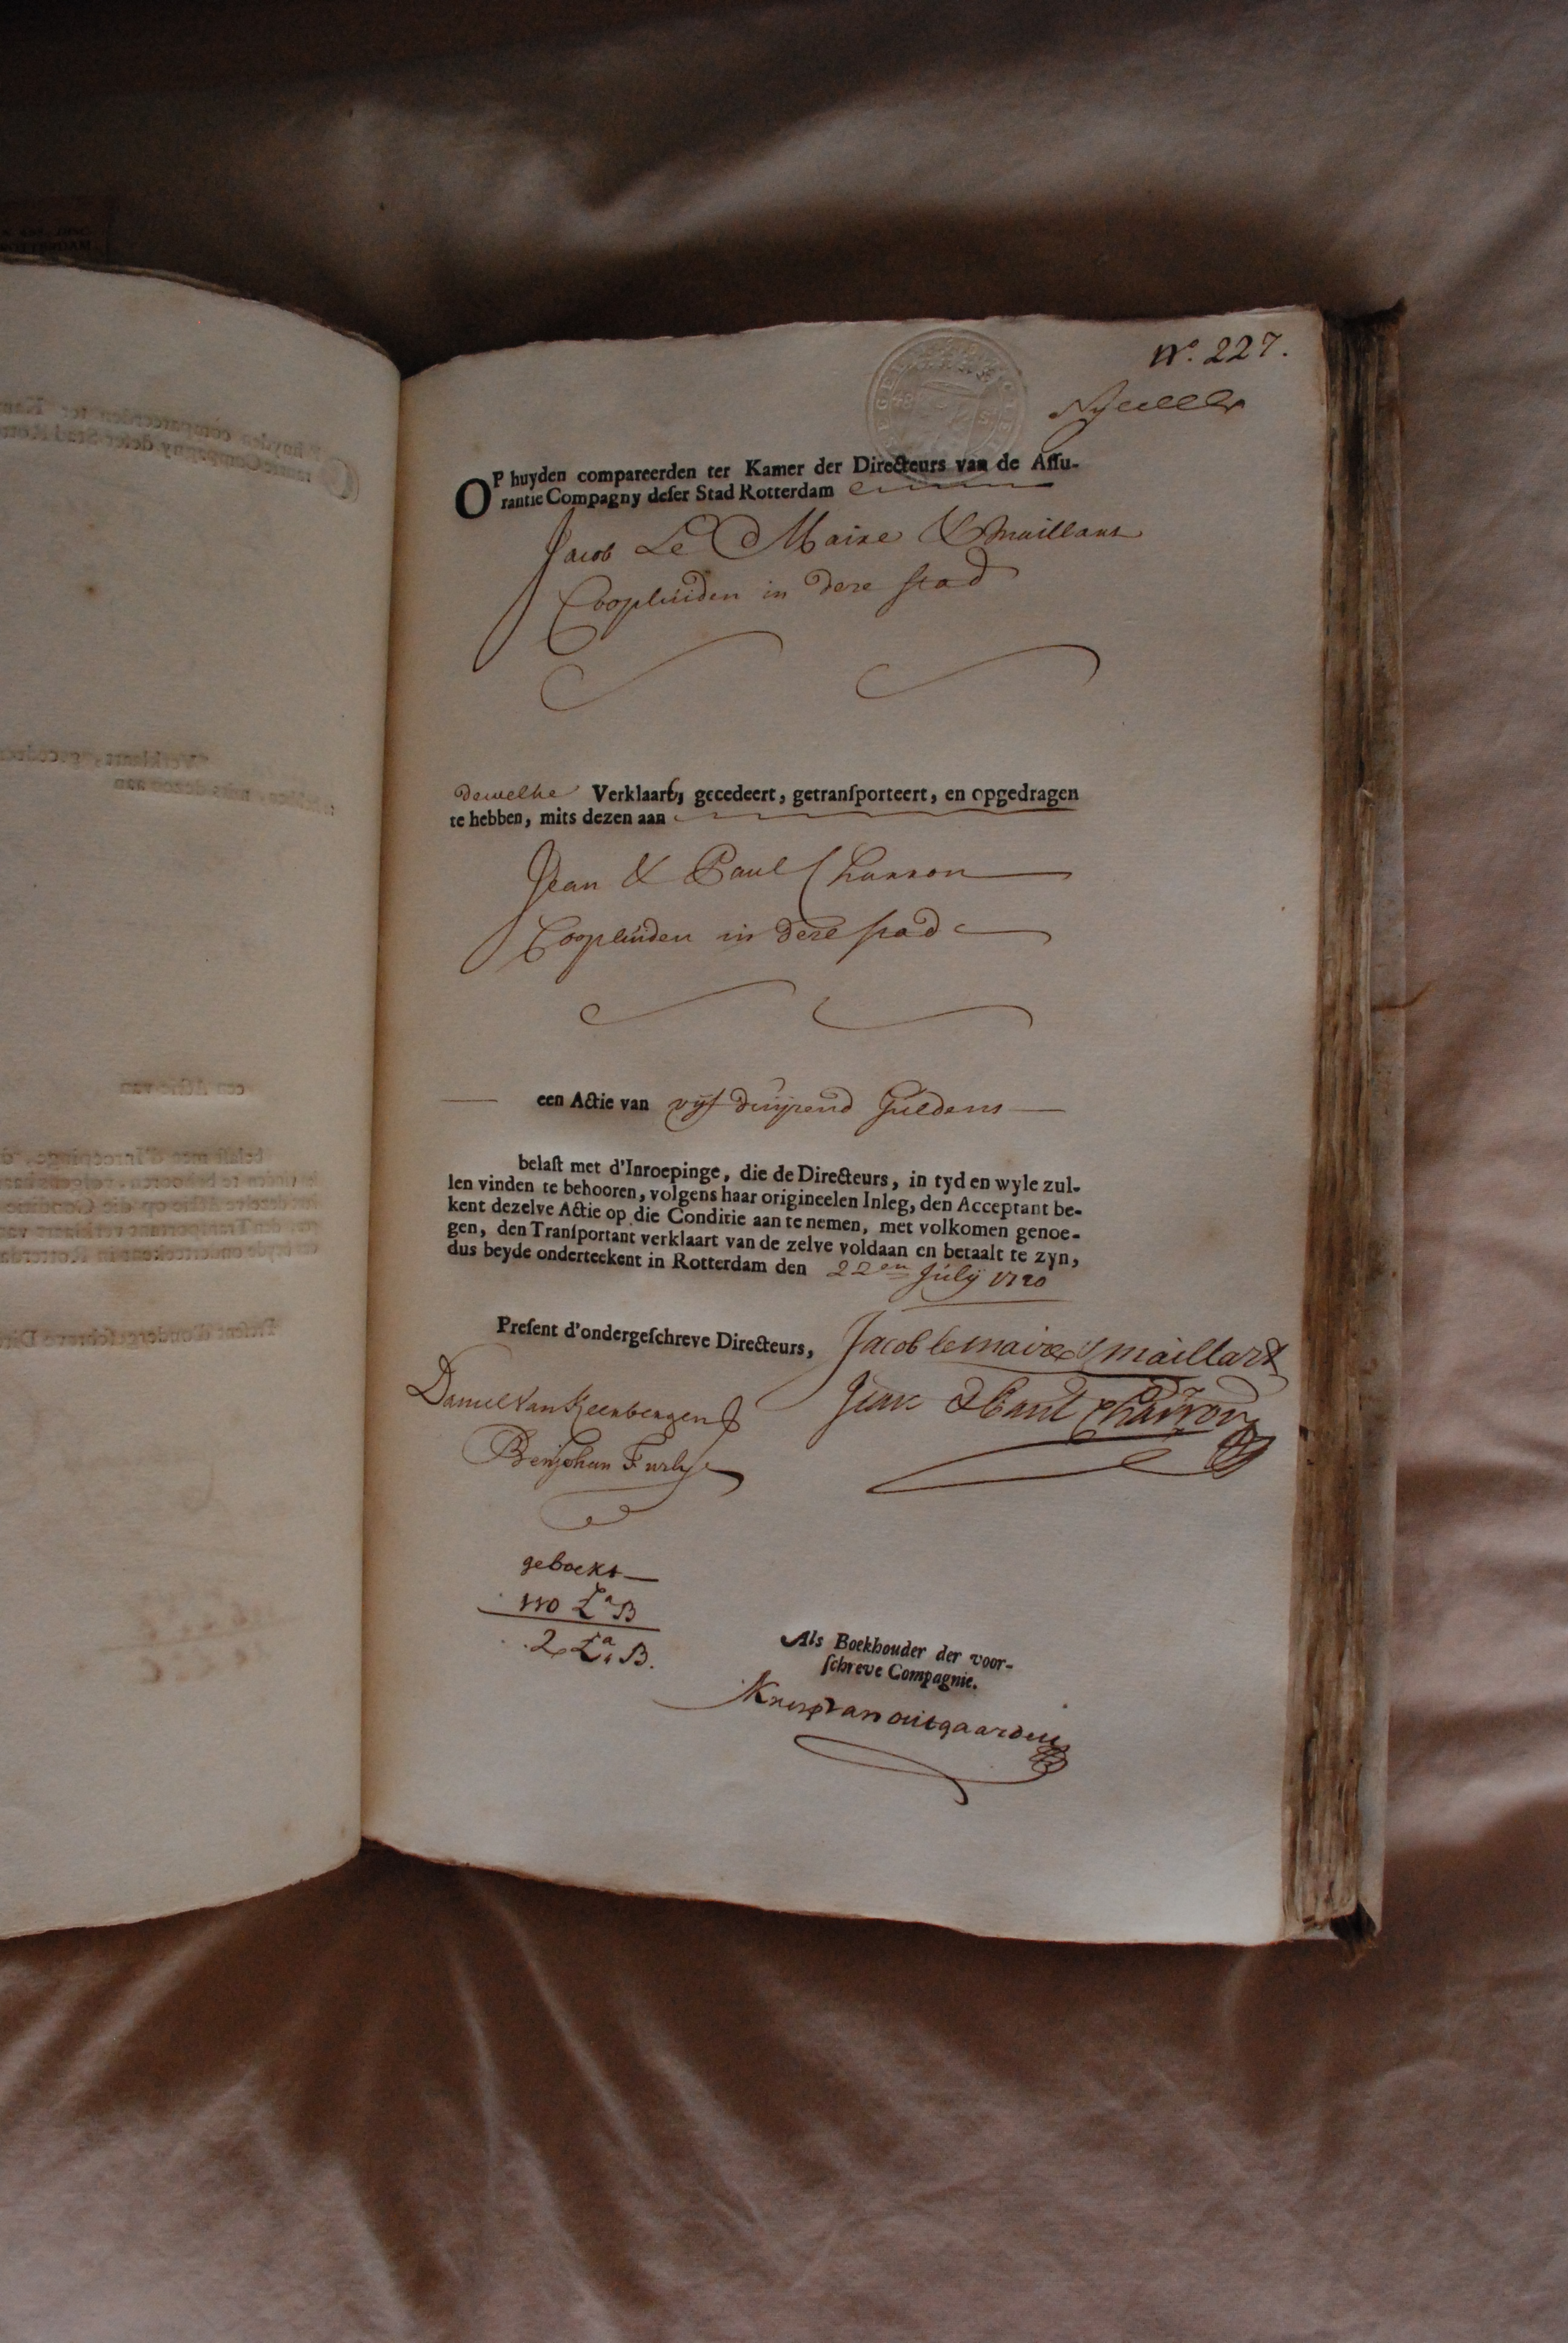 N.º 227.
OP huyden compareerden ter Kamer der Directeurs van de Aſſu-
rantie Compagny deſer Stad Rotterdam
Jacob Le Maire & Maillart
Coopluiden in deze stad
dewelke Verklaart, gecedeert, getranſporteert, en opgedragen
te hebben, mits dezen aan
Jean & Paul Charron
Coopluiden in deze stad
een Actie van vijf duijzend Guldens
belaſt met d'Inroepinge, die de Directeurs, in tyd en wyle zul-
len vinden te behooren, volgens haar origineelen Inleg, den Acceptant be-
kent dezelve Actie op die Conditie aan te nemen, met volkomen genoe-
gen, den Tranſportant verklaart van de zelve voldaan en betaalt te zyn,
dus beyde onderteekent in Rotterdam den 22en July 1720
Preſent d'ondergeſchreve Directeurs,
Jacob le maire & maillart
Jean & Paul Charron
Daniel Van
Benjohan Furly
geboekt
110 La B
2 La B.
Als Boekhouder der voor-
ſchreve Compagnie.
van outgaarden